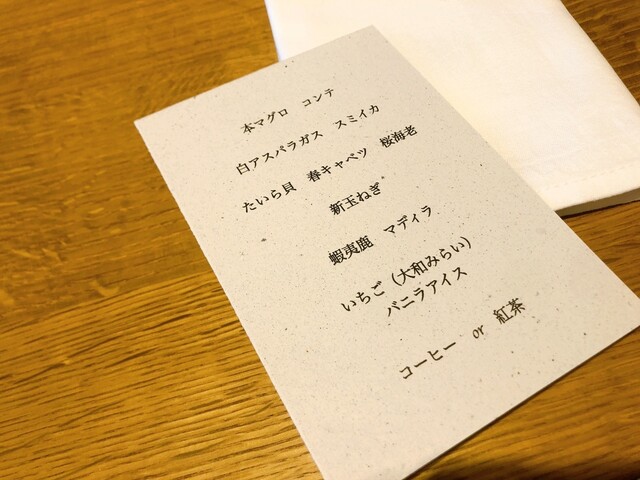 本マグロ　コンテ
白アスパラガス　スミイカ
たいら貝　春キャベツ　桜海老
新玉ねぎ
蝦夷鹿　マディラ
いちご（大和みらい）
バニラアイス
コーヒー　or　紅茶